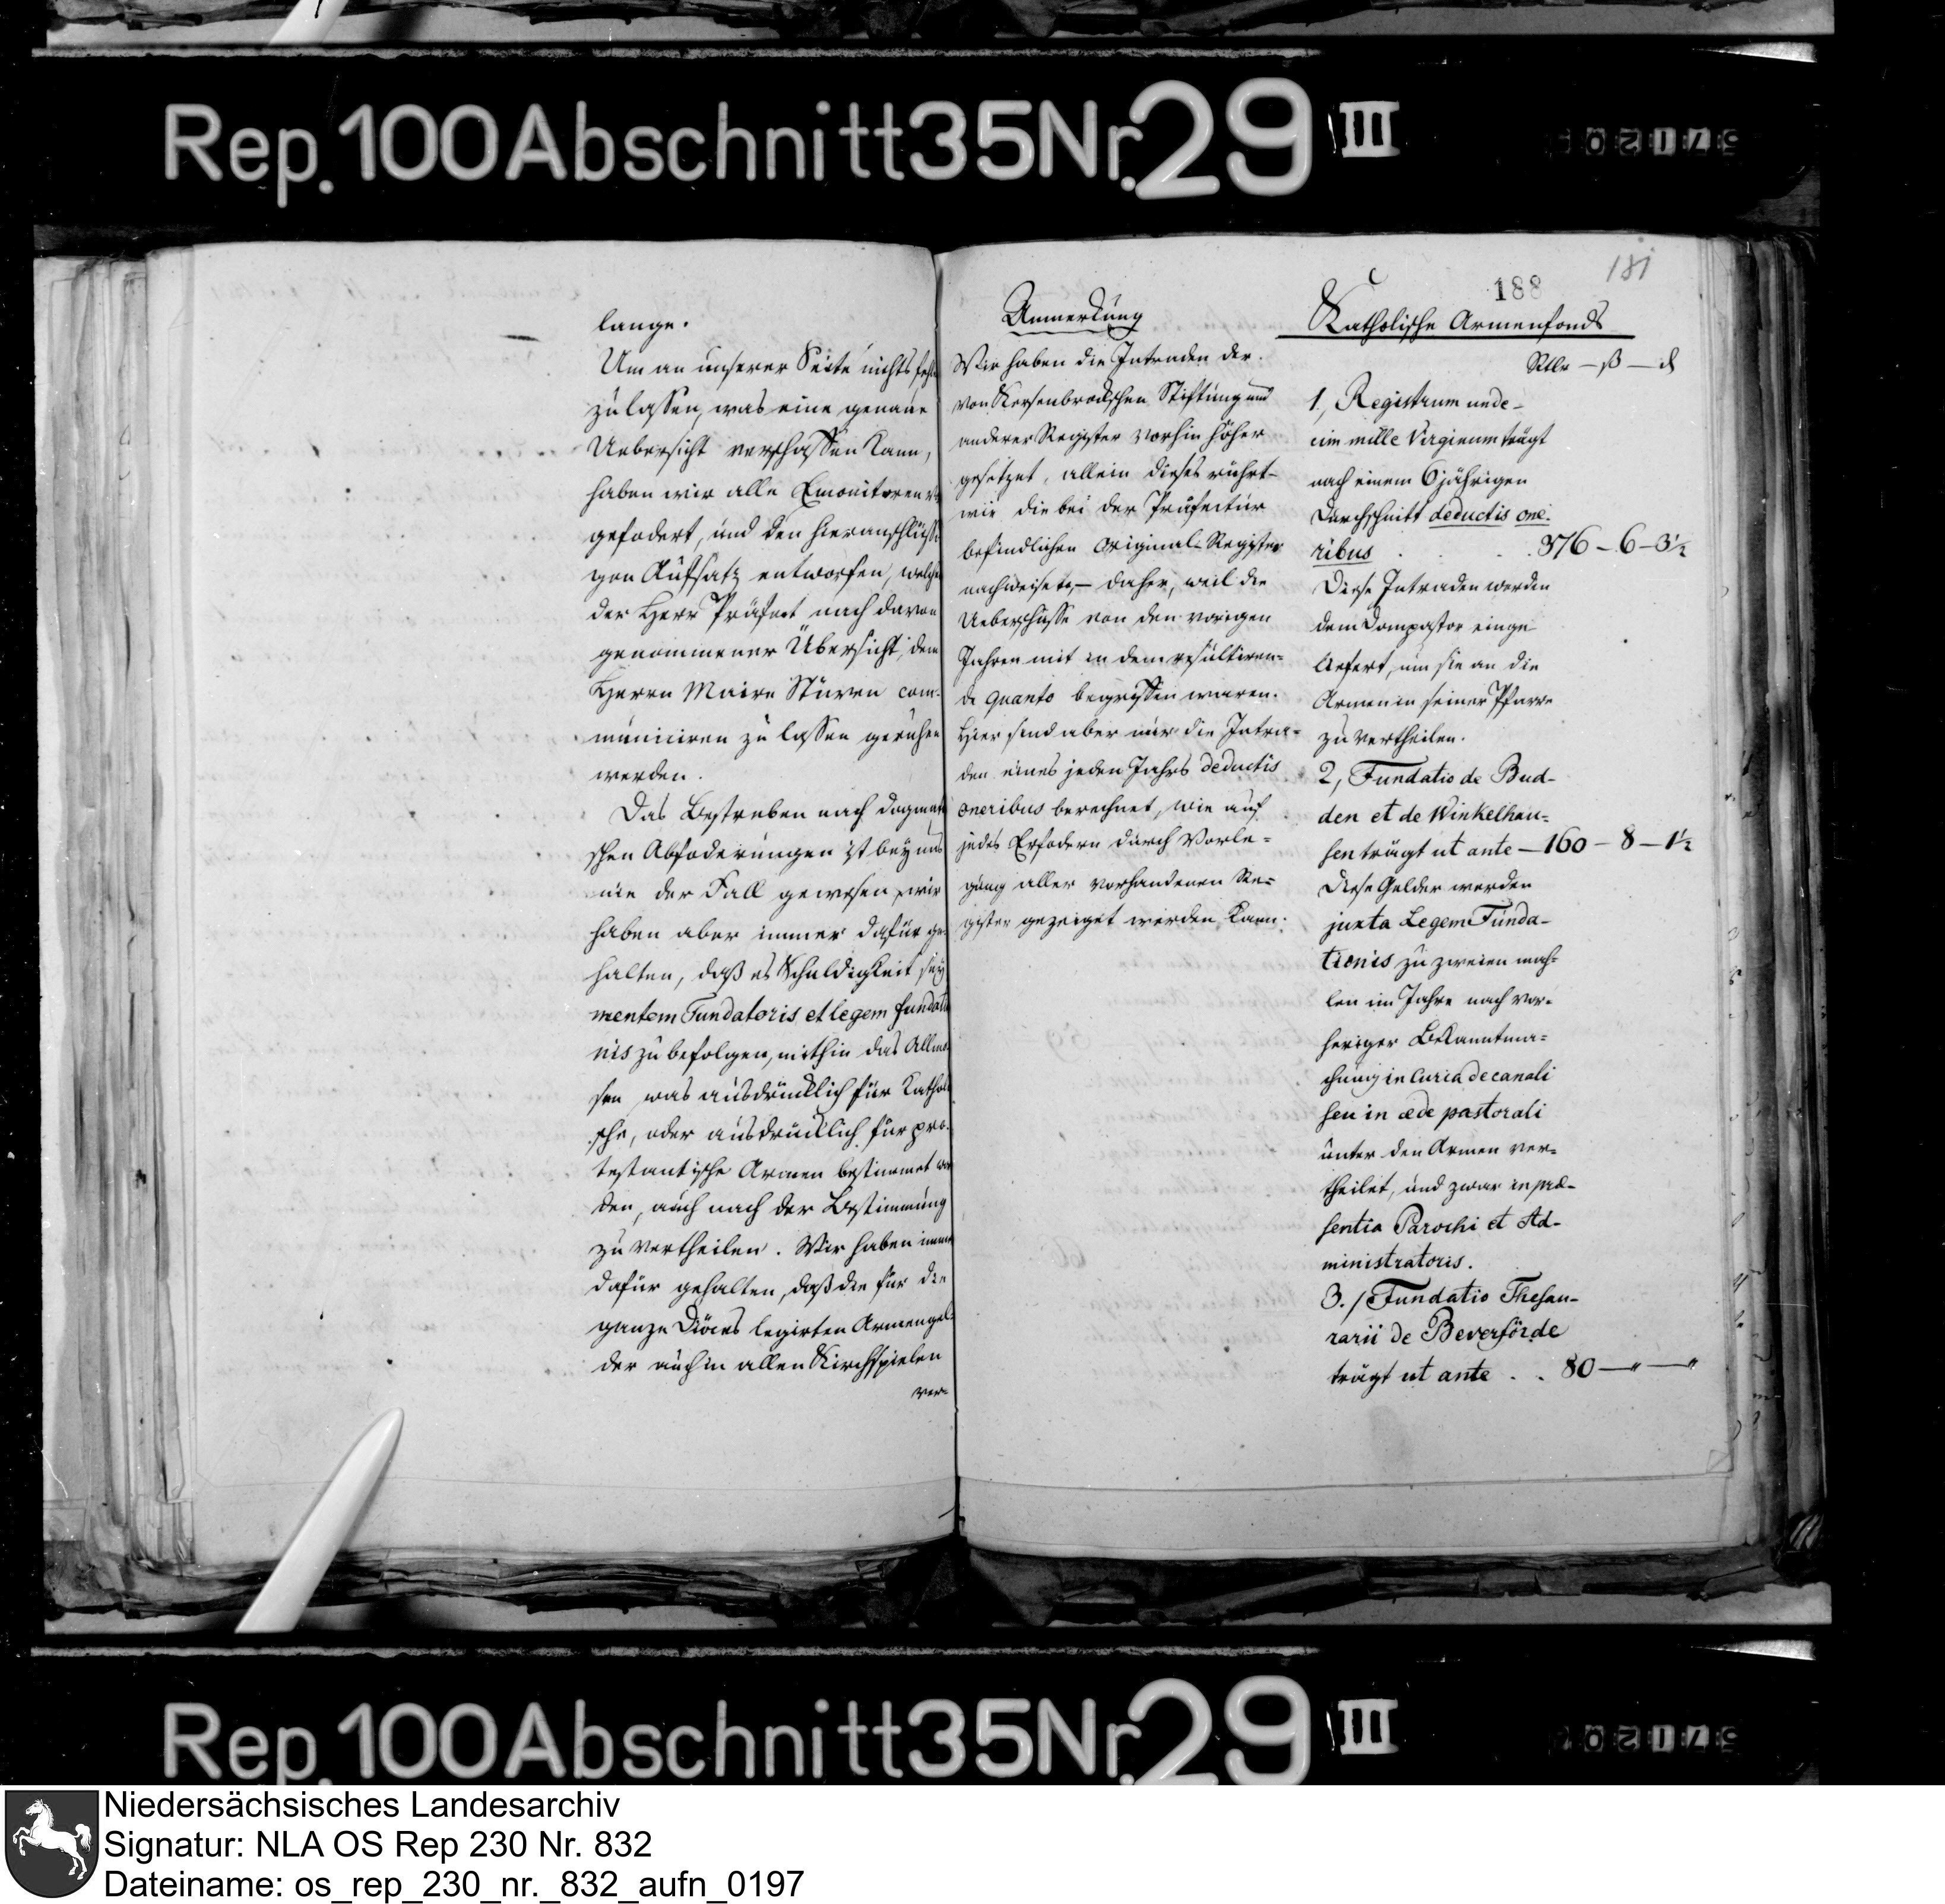 Rep. 100 Abschnitt 35 Nr. 29 III
lange.
Um an unserer Seite nichts fehlen
zu lassen, was eine genaue
Uebersicht verschaffen kann,
haben wir alle Emonitoren
gefodert, und den hieranschlüssi-
gen Aufsatz entworfen, welchen
der Herr Präfect nach davon
genommener Übersicht, dem
Herrn Maire Stüven com-
municiren zu lassen geruhen
werden.
Das Bestreben nach dogmati-
schen Absoderungen ist bey uns
nie der Fall gewesen, wir
haben aber immer dafür ge-
halten, daß es Schuldigkeit sey
mentem Fundatoris et legem fundatio-
nis zu befolgen, mithin das Allmo-
sen was ausdrücklich für Katholi-
sche, oder ausdrücklich für pro-
testantische Armen bestimmet wor-
den, auch nach der Bestimmung
zu vertheilen. Wir haben immer
dafür gehalten, daß die für die
ganze Diöces legirten Armengel-
der auch in allen Kirchspielen
ver-
188
181
Anmerkung
Wir haben die Intraden der
von Korsenbrockschen Stiftung und
anderer Register vorhin höher
gesetzet, allein dieses rührt-
wie die bei der Präfectur
befindlichen Original-Register
nachweisete,- daher, weil die
Ueberschüsse von den vorigen
Jahren mit in dem resultiren-
de quanto begriffen waren.
Hier sind aber nur die Intra-
den eines jeden Jahrs deductis
oneribus berechnet, wie auf
jedes Erfodern durch Vorle-
gung aller vorhandenen Re-
gister gezeiget werden kann.
Katholische Armenfonds
Rtlr — ß — d
1., Registrum unde-
cim mille Virginum trägt
nach einem 6jährigen
Durchschnitt deductis one-
ribus . . 376 - 6 - 3½
Diese Intraden werden
dem Dompastor einge-
liefert, um sie an die
Armen in seiner Pfarre
zu vertheilen.
2, Fundatio de Bud-
den et de Winkelhau-
sen trägt ut ante — 160 - 8 - 1½
Diese Gelder werden
juxta Legem Funda-
tionis zu zweien mah-
len im Jahre nach vor-
heriger Bekanntma-
chung in Curia decanali
seu in æde pastorali
unter den Armen ver-
theilet, und zwar in præ-
sentia Parochi et Ad-
ministratoris.
3./ Fundatio Thesau-
rarii de Beverförde
trägt ut ante . . 80 — " — "
Rep. 100 Abschnitt 35 Nr. 29 III
Niedersächsisches Landesarchiv
Signatur: NLA OS Rep 230 Nr. 832
Dateiname: os_rep_230_nr._832_aufn_0197